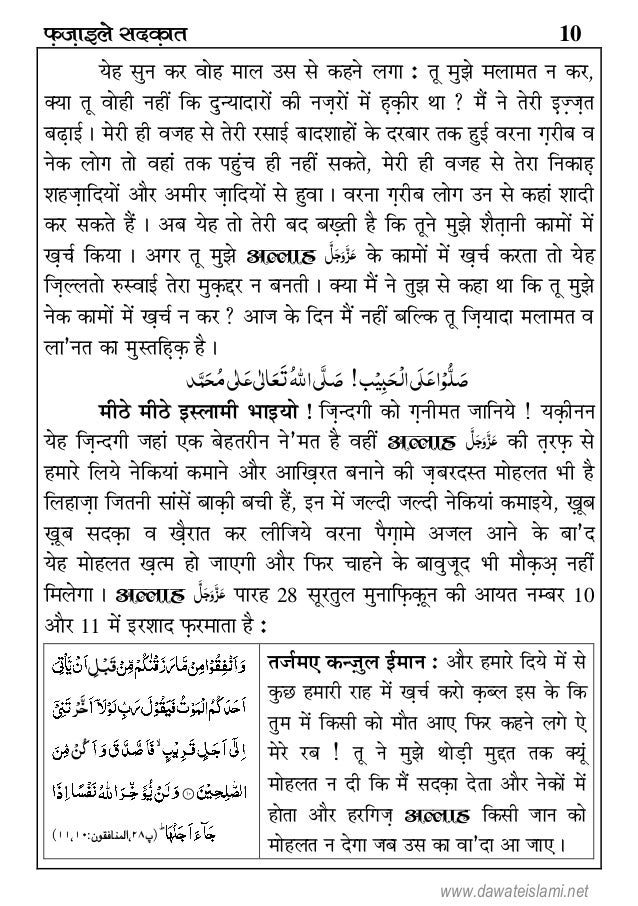 फ़ज़ाइले सदक़ात 10
येह सुन कर वोह माल उस से कहने लगा : तू मुझे मलामत न कर,
क्या तू वोही नहीं कि दुन्यादारों की नज़रों में हक़ीर था ? मैं ने तेरी इज़्ज़त
बढ़ाई । मेरी ही वजह से तेरी रसाई बादशाहों के दरबार तक हुई वरना ग़रीब व
नेक लोग तो वहां तक पहुंच ही नहीं सकते, मेरी ही वजह से तेरा निकाह़
शहज़ादियों और अमीर ज़ादियों से हुवा । वरना ग़रीब लोग उन से कहां शादी
कर सकते हैं । अब येह तो तेरी बद बख़्ती है कि तूने मुझे शैत़ानी कामों में
ख़र्च किया । अगर तू मुझे अल्लाह عَزَّوَجَلَّ के कामों में ख़र्च करता तो येह
ज़िल्लतो रुस्वाई तेरा मुक़द्दर न बनती । क्या मैं ने तुझ से कहा था कि तू मुझे
नेक कामों में ख़र्च न कर ? आज के दिन मैं नहीं बल्कि तू ज़ियादा मलामत व
ला'नत का मुस्तह़िक़ है ।
صَلُّوْا عَلَى الْحَبِيْب! صَلَّى اللهُ تَعَالٰى عَلٰى مُحَمَّد
मीठे मीठे इस्लामी भाइयो ! ज़िन्दगी को ग़नीमत जानिये ! यक़ीनन
येह ज़िन्दगी जहां एक बेहतरीन ने'मत है वहीं अल्लाह عَزَّوَجَلَّ की त़रफ़ से
हमारे लिये नेकियां कमाने और आख़िरत बनाने की ज़बरदस्त मोहलत भी है
लिहाज़ा जितनी सांसें बाक़ी बची हैं, इन में जल्दी जल्दी नेकियां कमाइये, ख़ूब
ख़ूब सदक़ा व ख़ैरात कर लीजिये वरना पैग़ामे अजल आने के बा'द
येह मोहलत ख़त्म हो जाएगी और फिर चाहने के बावुजूद भी मौक़अ़ नहीं
मिलेगा । अल्लाह عَزَّوَجَلَّ पारह 28 सूरतुल मुनाफ़िक़ून की आयत नम्बर 10
और 11 में इरशाद फ़रमाता है :
وَاَنْفِقُوْا مِنْ مَّا رَزَقْنٰكُمْ مِّنْ قَبْلِ اَنْ يَّاْتِيَ
اَحَدَكُمُ الْمَوْتُ فَيَقُوْلَ رَبِّ لَوْلَاۤ اَخَّرْتَنِيْۤ
اِلٰۤى اَجَلٍ قَرِيْبٍ ۙ فَاَصَّدَّقَ وَاَكُنْ مِّنَ
الصّٰلِحِيْنَ ۝۱۰ وَلَنْ يُّؤَخِّرَ اللهُ نَفْسًا اِذَا
جَآءَ اَجَلُهَا ؕ (پ۲۸،المنافقون:۱۰،۱۱)
तर्जमए कन्ज़ुल ईमान : और हमारे दिये में से
कुछ हमारी राह में ख़र्च करो क़ब्ल इस के कि
तुम में किसी को मौत आए फिर कहने लगे ऐ
मेरे रब ! तू ने मुझे थोड़ी मुद्दत तक क्यूं
मोहलत न दी कि मैं सदक़ा देता और नेकों में
होता और हरगिज़ अल्लाह किसी जान को
मोहलत न देगा जब उस का वा'दा आ जाए ।
www.dawateislami.net